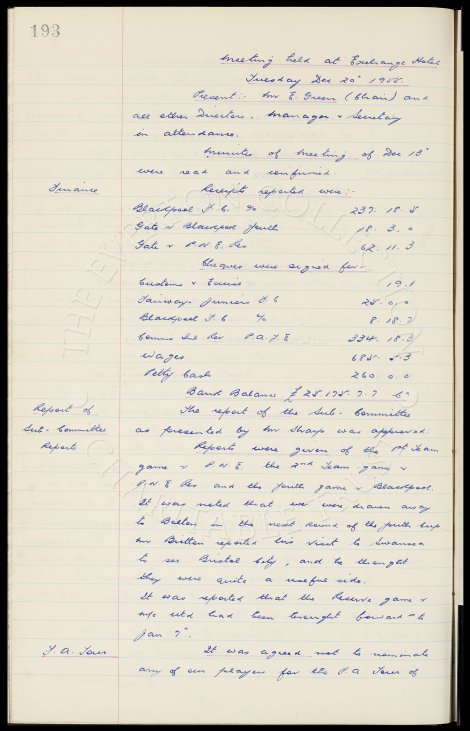 193
Meeting held at Exchange Hotel
Tuesday Dec 20th 1955.
Present:- Mr E. Green (Chair) and
all other Directors. Manager & Secretary
in attendance.
Minutes of Meeting of Dec 13th
were read and confirmed
Finance Receipts reported were:-
Blackpool F.C. % 237. 18. 5
Gate v Blackpool Youth 18. 3. 0
Gate v P.N.E. Res 62. 11. 3
Cheques were signed for:-
Customs & Excise 19. 1
Fairways Juniors F.C 25. 0. 0
Blackpool F.C. % 8. 18. 7
Comms Inl Rev P.A.Y.E 334. 18. 3
Wages 685. 5. 3
Petty Cash 260. 0. 0
Bank Balance £25175. 7. 7 Cr
Report of The report of the Sub-Committee
Sub-Committee as presented by Mr Sharp was approved.
Reports Reports were given of the 1st Team
game v P.N.E. the 2nd Team game v
P.N.E Res and the youth game v Blackpool.
It was noted that we were drawn away
to Bolton in the next round of the youth cup.
Mr Britten reported his visit to Swansea
to see Bristol City, and he thought
they were quite a useful side.
It was reported that the Reserve game v
M/c Utd had been brought forward to
Jan 7th.
F.A. Tour It was agreed not to nominate
any of our players for the F.A Tour of